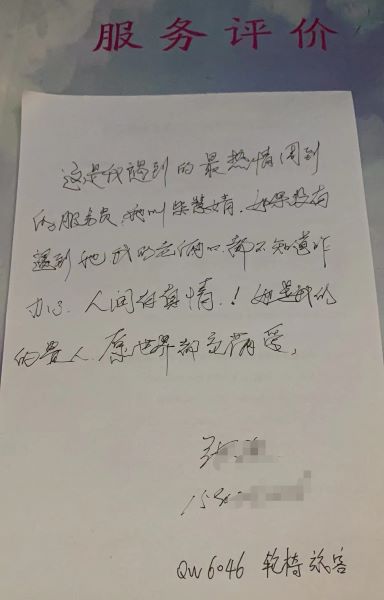 服务评价
这是我遇到的最热情周到
的服务员,她叫柴慧婧.如果没有
遇到她我们老俩口都不知道咋
办了.人间有真情.!她是我们
的贵人.愿世界都充满爱,
QW6046 轮椅旅客